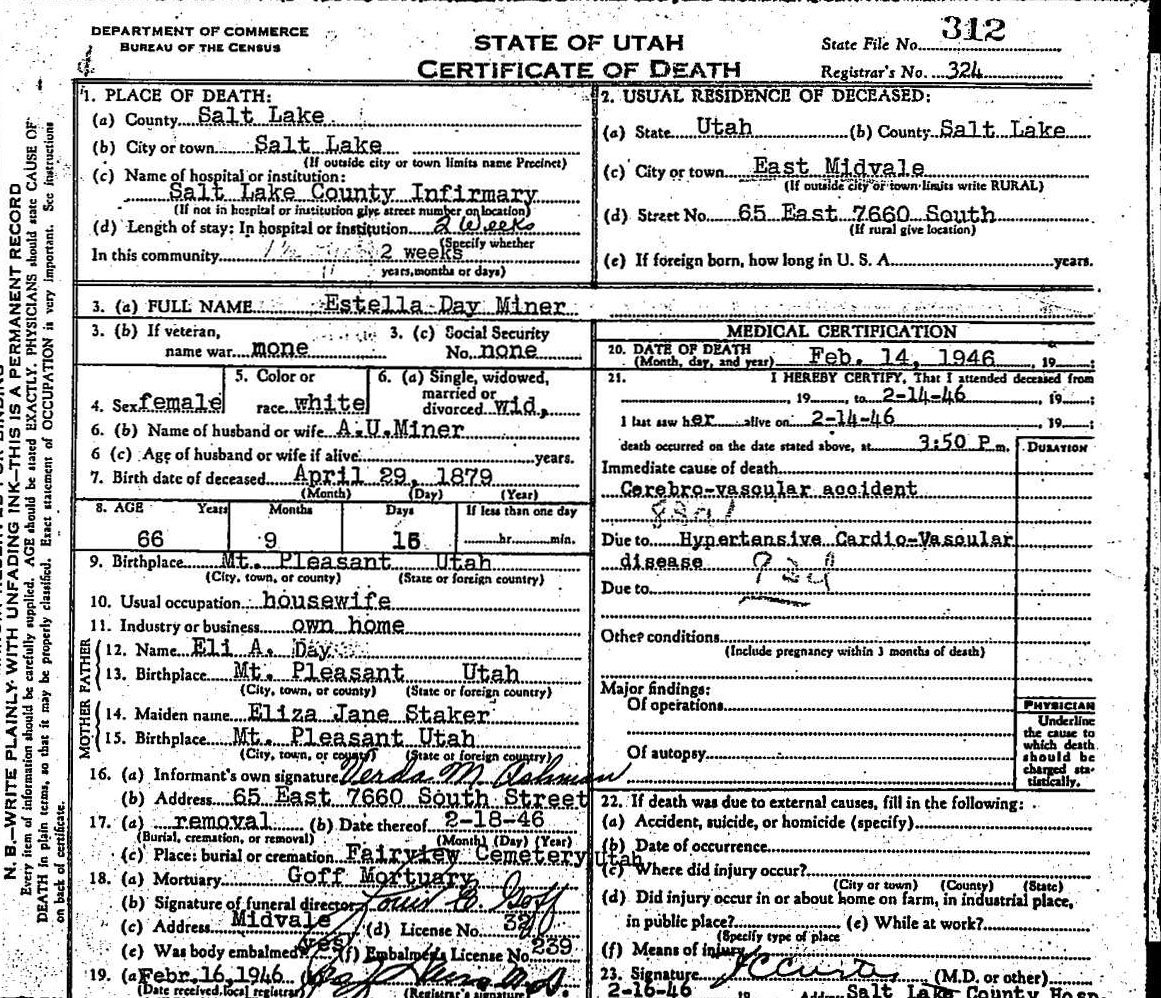 DEPARTMENT OF COMMERCE
BUREAU OF THE CENSUS
STATE OF UTAH
CERTIFICATE OF DEATH
State File No. 312
Registrar's No. 324
N. B.—WRITE PLAINLY WITH UNFADING INK—THIS IS A PERMANENT RECORD
Every item of information should be carefully supplied. AGE should be stated EXACTLY. PHYSICIANS should state CAUSE OF
DEATH in plain terms, so that it may be properly classified. Exact statement of OCCUPATION is very important. See instructions
on back of certificate.
1. PLACE OF DEATH:
(a) County Salt Lake
(b) City or town Salt Lake
(If outside city or town limits name Precinct)
(c) Name of hospital or institution:
Salt Lake County Infirmary
(If not in hospital or institution give street number or location)
(d) Length of stay: In hospital or institution 2 weeks
(Specify whether
In this community 2 weeks
years, months or days)
2. USUAL RESIDENCE OF DECEASED:
(a) State Utah (b) County Salt Lake
(c) City or town East Midvale
(If outside city or town limits write RURAL)
(d) Street No. 65 East 7660 South
(If rural give location)
(e) If foreign born, how long in U. S. A. years.
3. (a) FULL NAME Estella Day Miner
3. (b) If veteran, name war mone
3. (c) Social Security No. none
4. Sex female
5. Color or race white
6. (a) Single, widowed, married or divorced wid,
6. (b) Name of husband or wife A.U.Miner
6 (c) Age of husband or wife if alive years.
7. Birth date of deceased April 29, 1879
(Month) (Day) (Year)
8. AGE Years Months Days If less than one day
66 9 15 hr. min.
9. Birthplace Mt. Pleasant Utah
(City, town, or county) (State or foreign country)
10. Usual occupation housewife
11. Industry or business own home
FATHER
12. Name Eli A. Day
13. Birthplace Mt. Pleasant Utah
(City, town, or county) (State or foreign country)
MOTHER
14. Maiden name Eliza Jane Staker
15. Birthplace Mt. Pleasant Utah
(City, town, or county) (State or foreign country)
16. (a) Informant's own signature Verda M. Ashman
(b) Address 65 East 7660 South Street
17. (a) removal (b) Date thereof 2-18-46
(Burial, cremation, or removal) (Month) (Day) (Year)
(c) Place: burial or cremation Fairview Cemetery Utah
18. (a) Mortuary Goff Mortuary
(b) Signature of funeral director Goff
(c) Address Midvale (d) License No.
(e) Was body embalmed? yes (f) Embalmer's License No. 239
19. (a) Febr. 16, 1946
(Date received local registrar) (Registrar's signature)
MEDICAL CERTIFICATION
20. DATE OF DEATH
(Month, day, and year) Feb. 14, 1946 19
21. I HEREBY CERTIFY, That I attended deceased from
19 , to 2-14-46 19
I last saw her alive on 2-14-46 , 19
death occurred on the date stated above, at 3:50 P m.
DURATION
Immediate cause of death
Cerebro-vascular accident
Due to Hypertensive Cardio-Vascular
disease
Due to
Other conditions
(Include pregnancy within 3 months of death)
Major findings:
Of operations
Of autopsy
PHYSICIAN
Underline
the cause to
which death
should be
charged sta-
tistically.
22. If death was due to external causes, fill in the following:
(a) Accident, suicide, or homicide (specify)
(b) Date of occurrence
(c) Where did injury occur?
(City or town) (County) (State)
(d) Did injury occur in or about home on farm, in industrial place,
in public place? (e) While at work?
(Specify type of place
(f) Means of injury
23. Signature J C Curtis (M.D. or other)
2-16-46 19 Address Salt Lake County Hosp